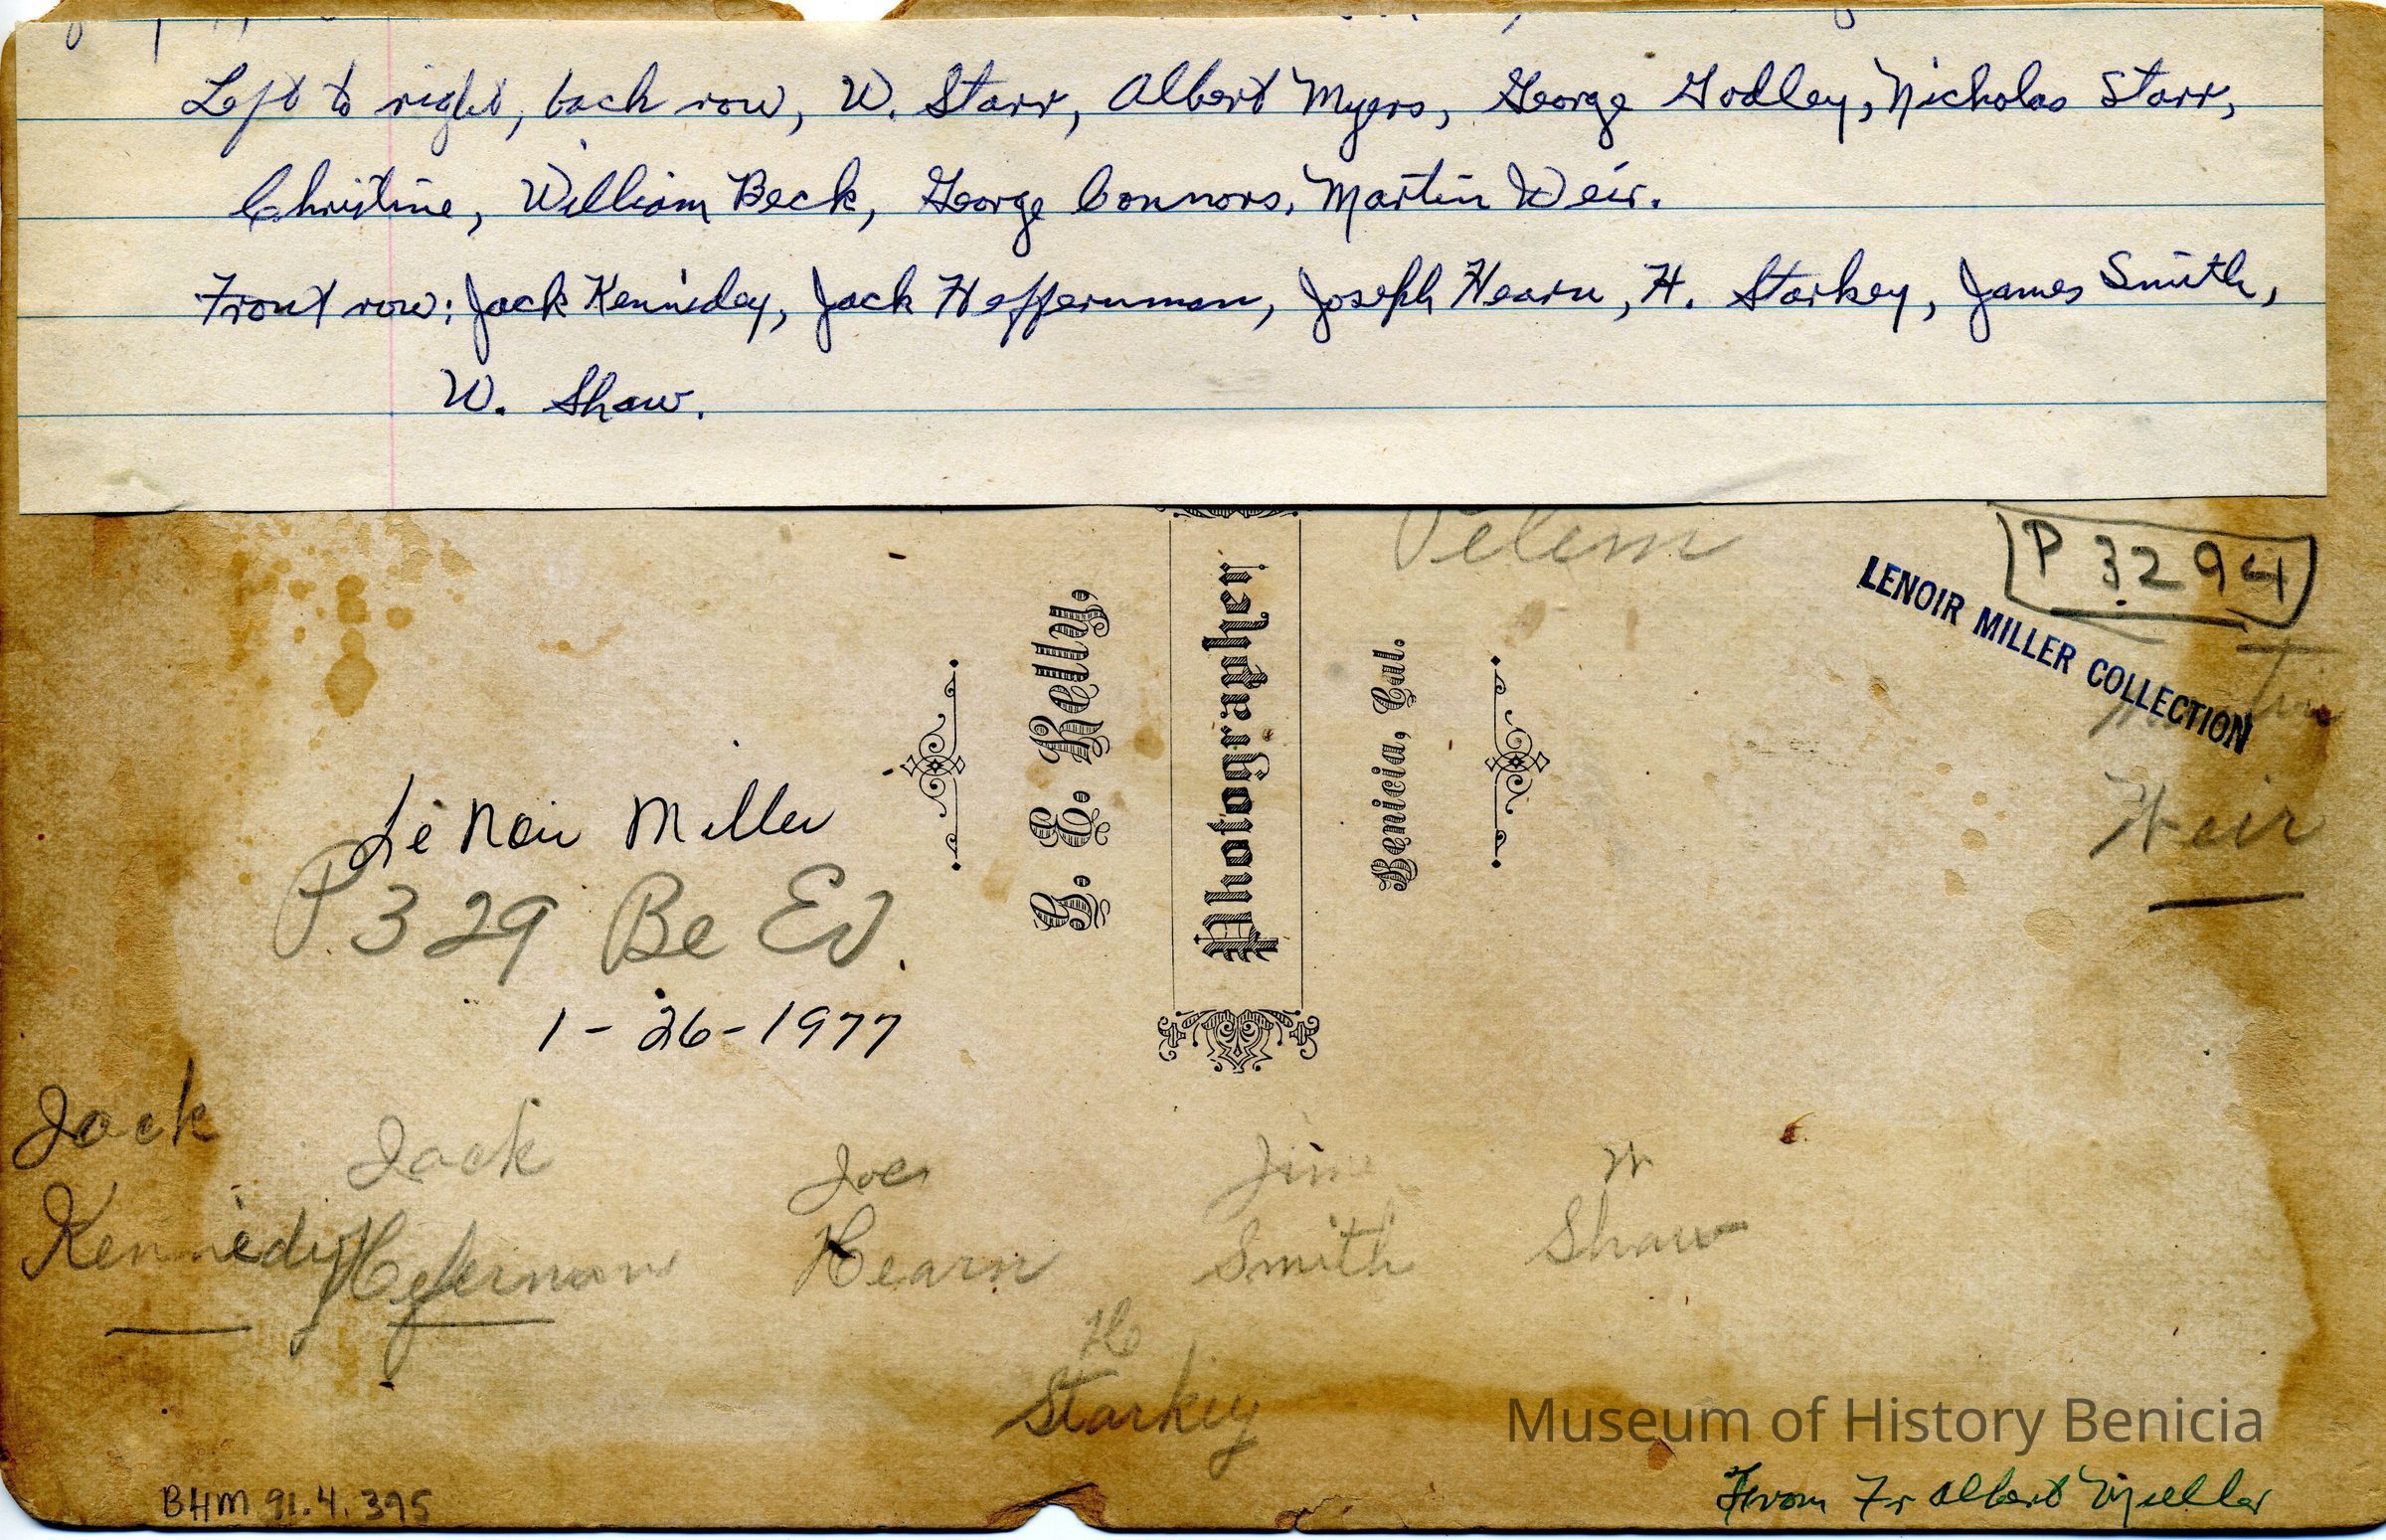 Left to right, back row, W. Starr, Albert Myers, George Godley, Nicholas Starr,
Christine, William Beck, George Connors, Martin Weir.
Front row: Jack Kenniday, Jack Heffernman, Joseph Hearn, H. Starkey, James Smith,
W. Shaw.
P 3294
LENOIR MILLER COLLECTION
Martin
Weir
Kelly,
Photographer
Benicia, Cal.
LeNoir Miller
P. 329 Be Ed.
1-26-1977
Jack
Kennedy
Jack
Hefernan
Joe
Hearn
Jim
Smith
W
Shaw
H
Starkey
Museum of History Benicia
BHM 91.4.395
From Fr Albert Mueller